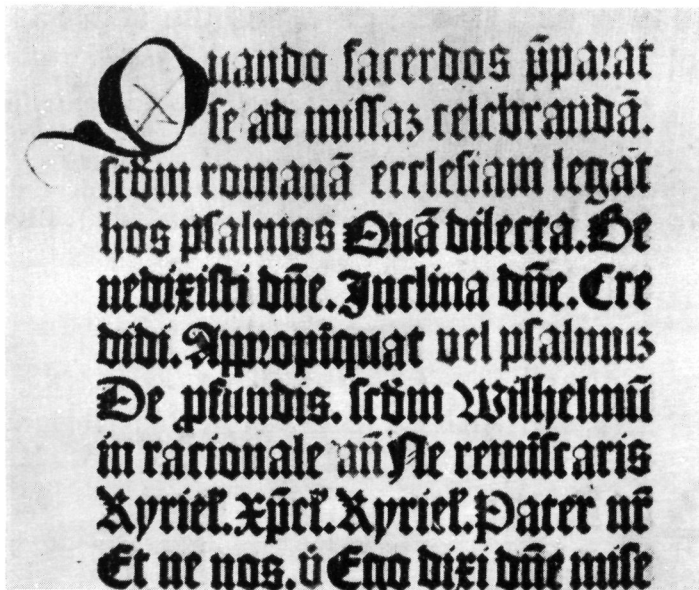 Quando sacerdos p̄parat
se ad missaz celebrandā.
scd̄m romanā ecclesiam legat
hos psalmos Quā dilecta. Be
nedixisti dn̄e. Inclina dn̄e. Cre
didi. Appropīquat vel psalmuz
De ꝓfundis. scd̄m Wilhelmū
in racionale an̄ Ne remīscaris
Kyriel̄. Xp̄el̄. Kyriel̄. Pater nr̄
Et ne nos. v̊ Ego dixi dn̄e mise